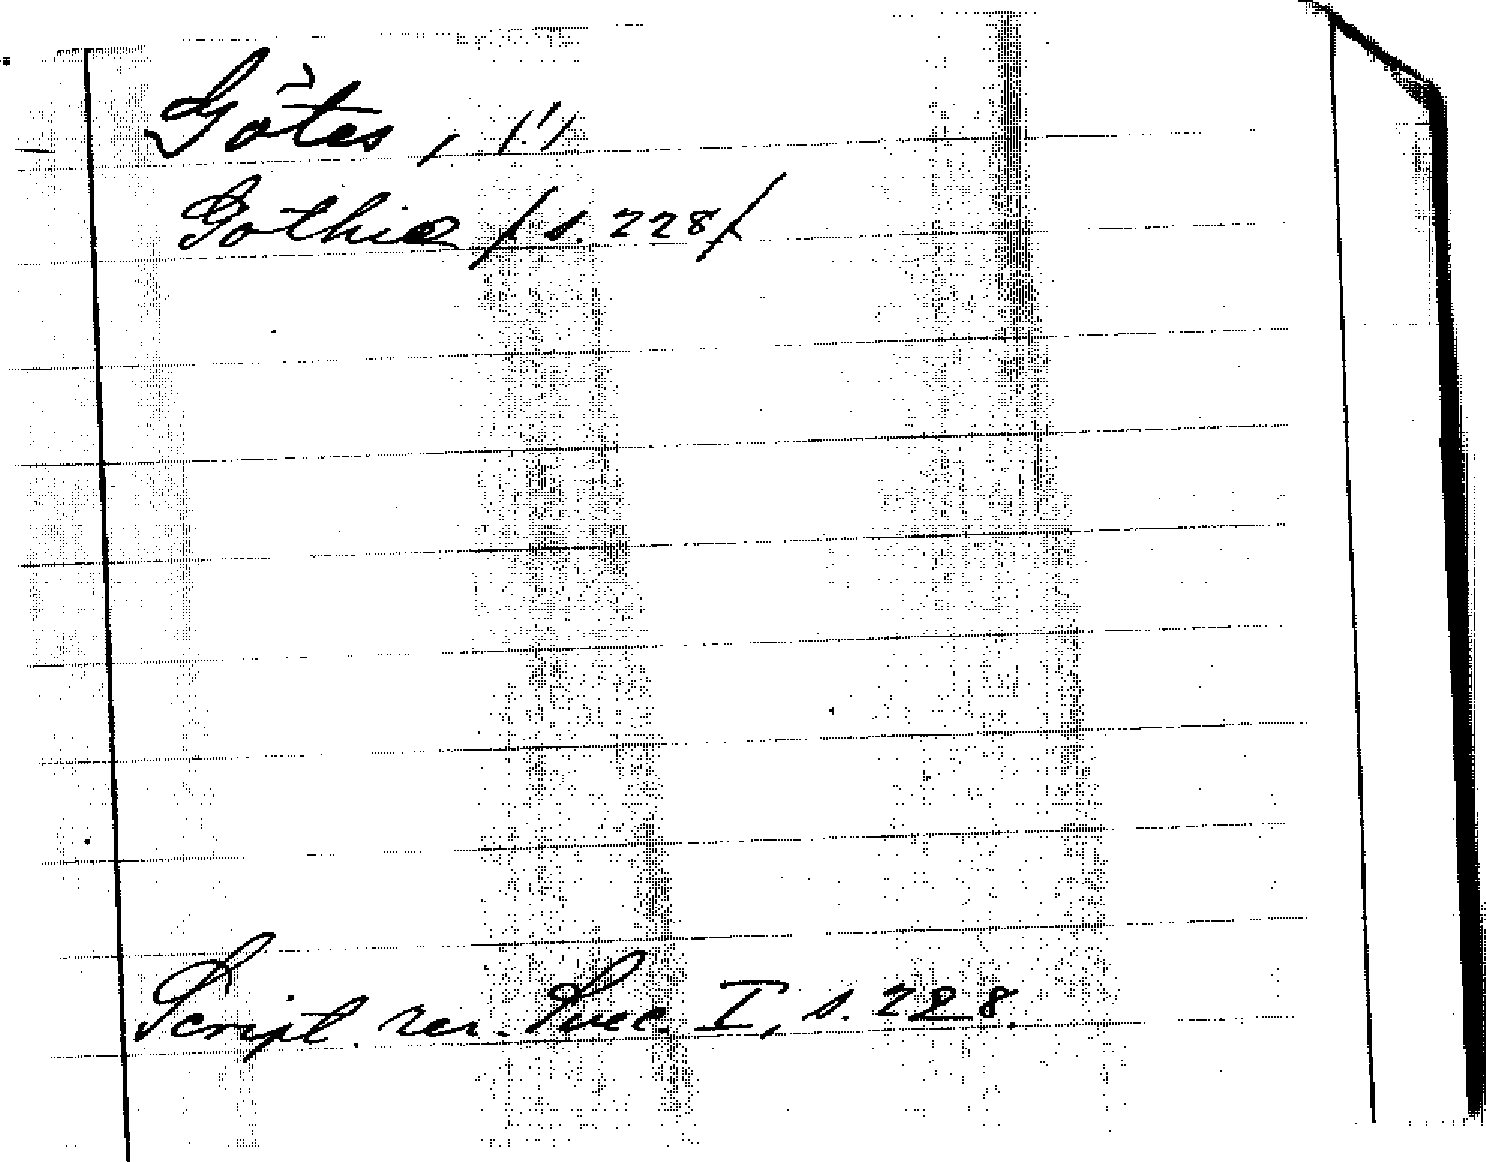 Götes, /'/
Gothia /s. 228/
Script. rer. Svec. I, s. 228.